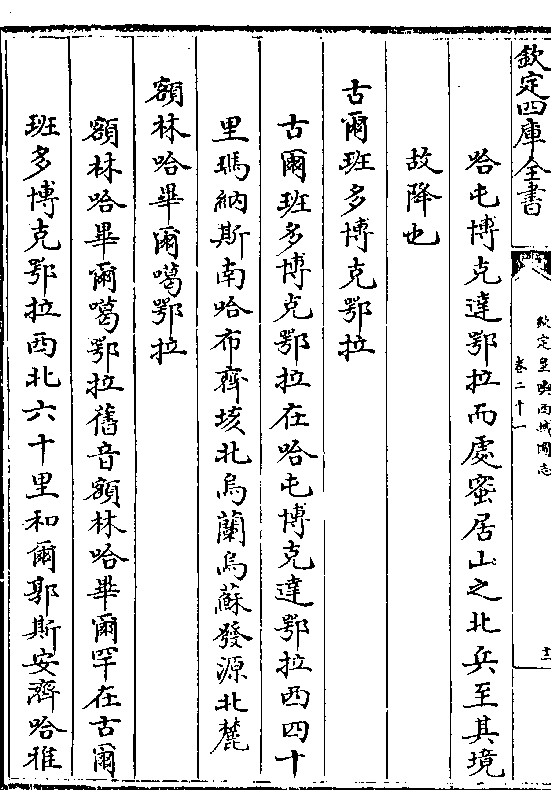 欽定四庫全書
欽定皇輿西域圖志
卷二十一
十二
哈屯博克達鄂拉而處蜜居山之北兵至其境
故降也
古爾班多博克鄂拉
古爾班多博克鄂拉在哈屯博克達鄂拉西四十
里瑪納斯南哈布齊垓北烏蘭烏蘇發源北麓
額林哈畢爾噶鄂拉
額林哈畢爾噶鄂拉舊音額林哈畢爾罕在古爾
班多博克鄂拉西北六十里和爾郭斯安濟哈雅